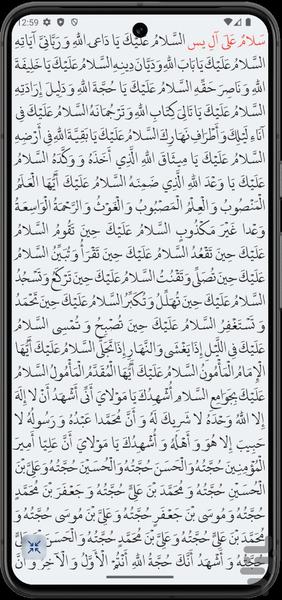 12:59
سَلَامٌ عَلَى آلِ يس السَّلَامُ عَلَيْكَ يَا دَاعِيَ اللَّهِ وَ رَبَّانِيَّ آيَاتِهِ
السَّلَامُ عَلَيْكَ يَا بَابَ اللَّهِ وَ دَيَّانَ دِينِهِ السَّلَامُ عَلَيْكَ يَا خَلِيفَةَ
اللَّهِ وَ نَاصِرَ حَقِّهِ السَّلَامُ عَلَيْكَ يَا حُجَّةَ اللَّهِ وَ دَلِيلَ إِرَادَتِهِ
السَّلَامُ عَلَيْكَ يَا تَالِيَ كِتَابِ اللَّهِ وَ تَرْجُمَانَهُ السَّلَامُ عَلَيْكَ فِي
آنَاءِ لَيْلِكَ وَ أَطْرَافِ نَهَارِكَ السَّلَامُ عَلَيْكَ يَا بَقِيَّةَ اللَّهِ فِي أَرْضِهِ
السَّلَامُ عَلَيْكَ يَا مِيثَاقَ اللَّهِ الَّذِي أَخَذَهُ وَ وَكَّدَهُ السَّلَامُ
عَلَيْكَ يَا وَعْدَ اللَّهِ الَّذِي ضَمِنَهُ السَّلَامُ عَلَيْكَ أَيُّهَا الْعَلَمُ
الْمَنْصُوبُ وَ الْعِلْمُ الْمَصْبُوبُ وَ الْغَوْثُ وَ الرَّحْمَةُ الْوَاسِعَةُ
وَعْدا غَيْرَ مَكْذُوبٍ السَّلَامُ عَلَيْكَ حِينَ تَقُومُ السَّلَامُ
عَلَيْكَ حِينَ تَقْعُدُ السَّلَامُ عَلَيْكَ حِينَ تَقْرَأُ وَ تُبَيِّنُ السَّلَامُ
عَلَيْكَ حِينَ تُصَلِّي وَ تَقْنُتُ السَّلَامُ عَلَيْكَ حِينَ تَرْكَعُ وَ تَسْجُدُ
السَّلَامُ عَلَيْكَ حِينَ تُهَلِّلُ وَ تُكَبِّرُ السَّلَامُ عَلَيْكَ حِينَ تَحْمَدُ
وَ تَسْتَغْفِرُ السَّلَامُ عَلَيْكَ حِينَ تُصْبِحُ وَ تُمْسِي السَّلَامُ
عَلَيْكَ فِي اللَّيْلِ إِذَا يَغْشَى وَ النَّهَارِ إِذَا تَجَلَّى السَّلَامُ عَلَيْكَ أَيُّهَا
الْإِمَامُ الْمَأْمُونُ السَّلَامُ عَلَيْكَ أَيُّهَا الْمُقَدَّمُ الْمَأْمُولُ السَّلَامُ
عَلَيْكَ بِجَوَامِعِ السَّلَامِ أُشْهِدُكَ يَا مَوْلَايَ أَنِّي أَشْهَدُ أَنْ لَا إِلَهَ
إِلَّا اللَّهُ وَحْدَهُ لَا شَرِيكَ لَهُ وَ أَنَّ مُحَمَّدا عَبْدُهُ وَ رَسُولُهُ لَا
حَبِيبَ إِلَّا هُوَ وَ أَهْلُهُ وَ أُشْهِدُكَ يَا مَوْلَايَ أَنَّ عَلِيّا أَمِيرَ
الْمُؤْمِنِينَ حُجَّتُهُ وَ الْحَسَنَ حُجَّتُهُ وَ الْحُسَيْنَ حُجَّتُهُ وَ عَلِيَّ بْنَ
الْحُسَيْنِ حُجَّتُهُ وَ مُحَمَّدَ بْنَ عَلِيٍّ حُجَّتُهُ وَ جَعْفَرَ بْنَ مُحَمَّدٍ
حُجَّتُهُ وَ مُوسَى بْنَ جَعْفَرٍ حُجَّتُهُ وَ عَلِيَّ بْنَ مُوسَى حُجَّتُهُ وَ
مُحَمَّدَ بْنَ عَلِيٍّ حُجَّتُهُ وَ عَلِيَّ بْنَ مُحَمَّدٍ حُجَّتُهُ وَ الْحَسَنَ بْنَ عَلِيٍّ
حُجَّتُهُ وَ أَشْهَدُ أَنَّكَ حُجَّةُ اللَّهِ أَنْتُمُ الْأَوَّلُ وَ الْآخِرُ وَ أَنَّ